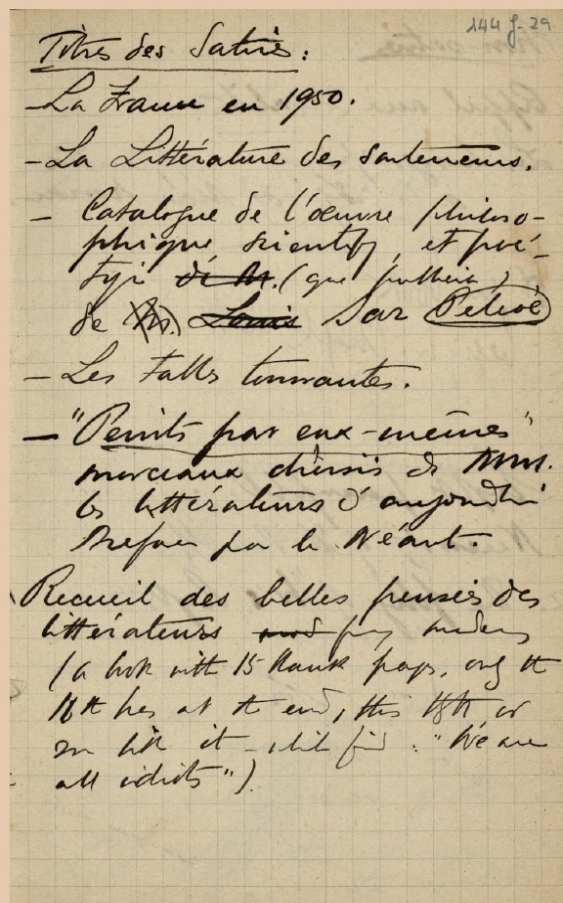 144 J-29
Titres des Satires :
- La France en 1950.
- La Littérature des souteneurs.
- Catalogue de l'œuvre philoso-
phique, scientif, et poé-
(que publiera)
de M. Louis Sar
- Les Tables tournantes.
- "Peints par eux-mêmes"
morceaux choisis de MM.
les littérateurs d'aujourd'hui
Préface par le Néant
Recueil des belles pensées des
littérateurs
(a book with 15 blank pages, only the
16th has at the end, this
it - : "We are
all idiots").